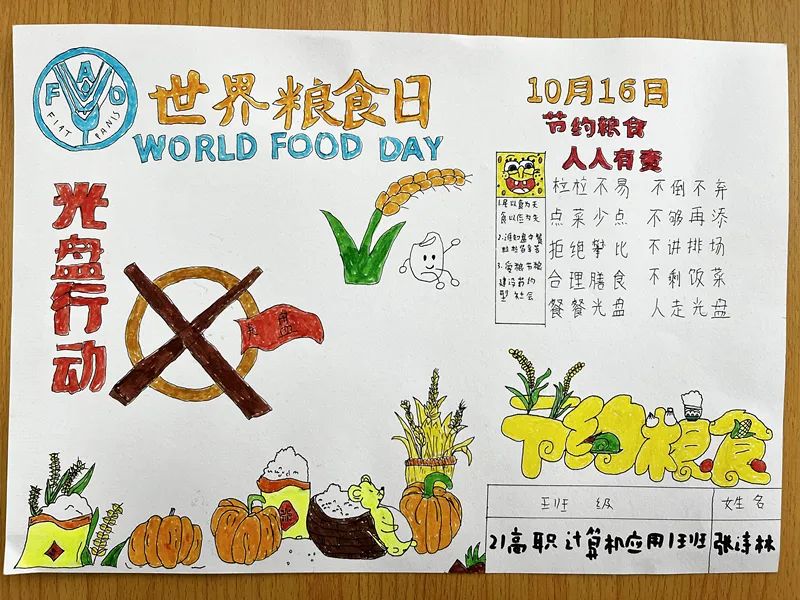 FAO
FIAT PANIS
世界粮食日
WORLD FOOD DAY
光盘行动
光盘
10月16日
节约粮食
人人有责
粒粒不易 不倒不弃
点菜少点 不够再添
拒绝攀比 不讲排场
合理膳食 不剩饭菜
餐餐光盘 人走光盘
1.民以食为天
食以俭为先
2.谁知盘中餐
粒粒皆辛苦
3.爱粮节粮
建设节约
型社会
节约粮食
班级 姓名
21高职计算机应用1班班 张诗林